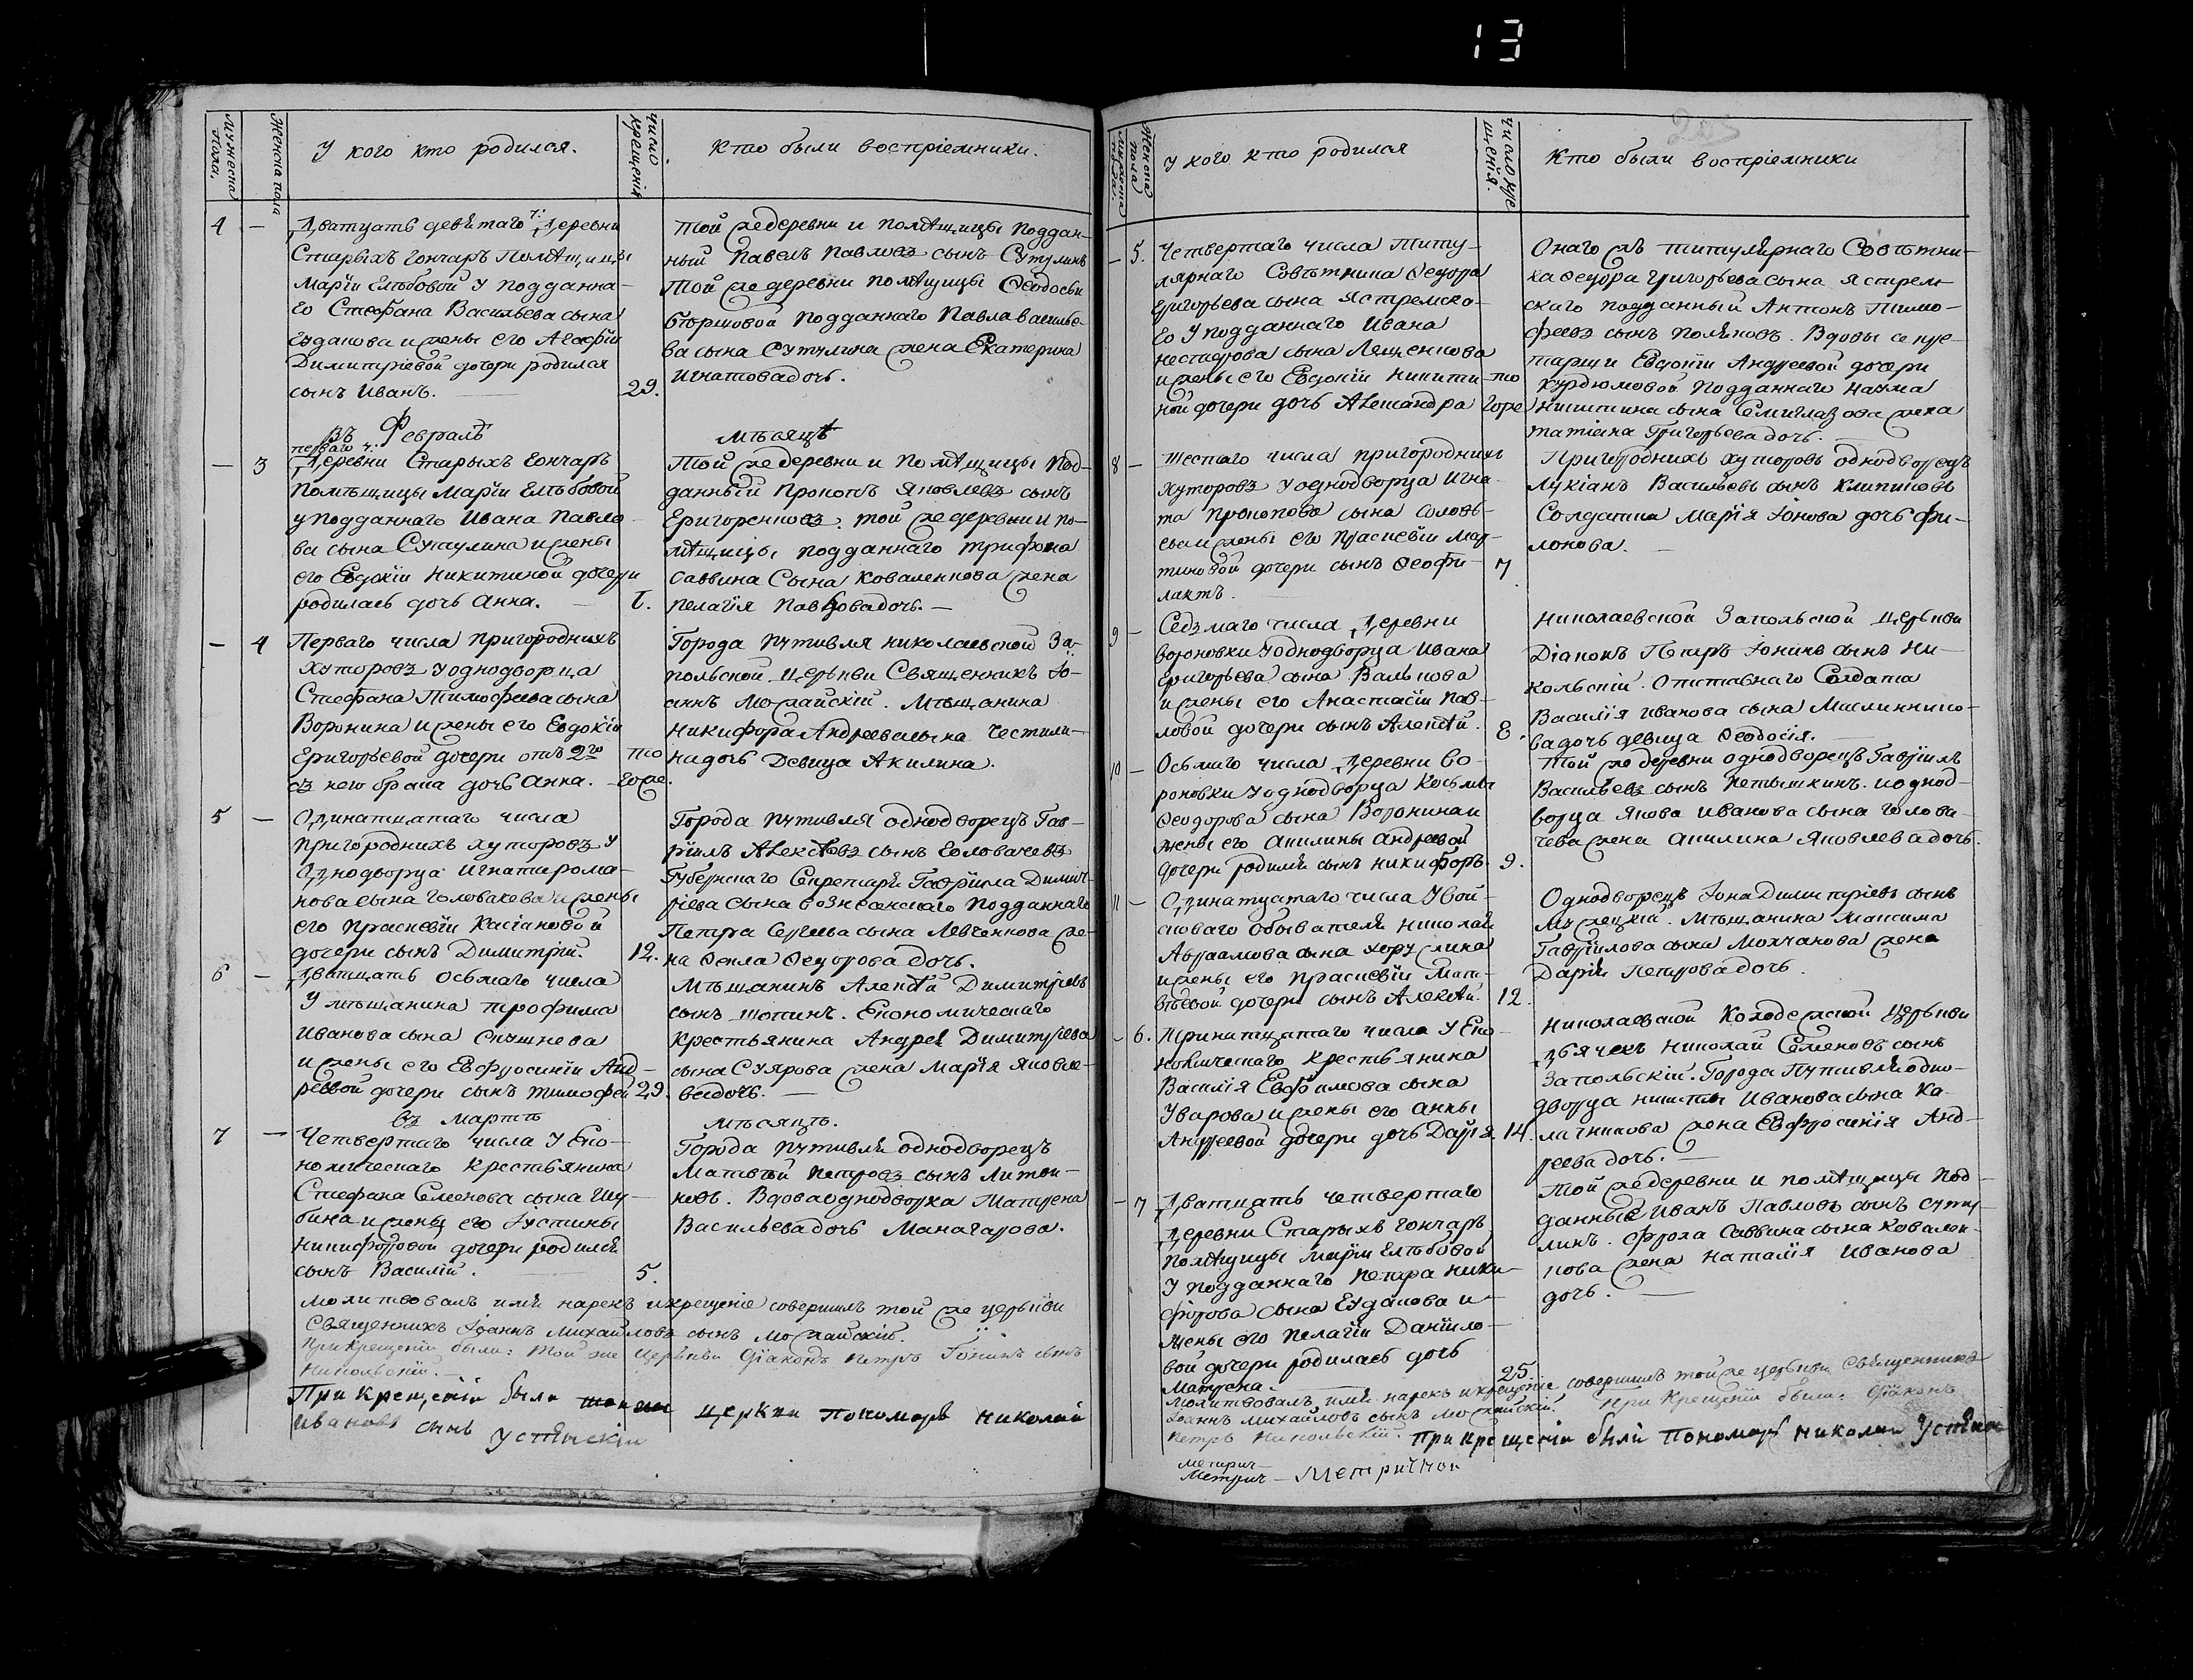 13
Мужеска пола.
Женска пола
У кого кто родился.
Число крещенія
Кто были воспріемники.
4 —
Дватцать девятаго ч: Деревни
Старыхъ Гончаръ Помѣщицы
Маріи Глѣбовой у подданна-
го Стефана Васильева сына
Гудакова и жены его Агафіи
Димитріевой дочери родился
сынъ Иванъ. —
29.
Той же деревни и помѣщицы поддан-
ный Павелъ Павловъ сынъ Сутулинъ
Той же деревни помѣщицы Ѳеодосьи
подданнаго Павла василье-
ва сына Сутулина жена Екатерина
Игнатова дочь.
въ Февралѣ
мѣсяцѣ
— 3
перваго ч:
Деревни Старыхъ Гончаръ
Помѣщицы Маріи Глѣбовой
у подданнаго Ивана Павло-
ва сына Сутулина и жены
его Евдокіи Никитиной дочери
родилась дочь Анна. —
1.
Той же деревни и Помѣщицы под-
данный Прокопъ Яковлевъ сынъ
Григоренковъ. той же деревни и по-
мѣщицы подданнаго Трифона
Саввина Сына Коваленкова жена
Пелагія Павлова дочь. —
— 4
Перваго числа пригородныхъ
хуторовъ у однодворца
Стефана Тимофеева сына
Воронина и жены его Евдокіи
Григорьевой дочери отъ 2го
съ нею брака дочь Анна. —
то
гоже.
Города Путивля николаевской За-
польской церькви Священникъ Іо-
аннъ Можайскій. Мѣщанина
Никифора Андреева сына Честили-
на дочь Девица Акилина.
5 —
Одинатцатаго числа
пригородныхъ хуторовъ у
Однодворца Игната рома-
нова сына Головачева и жены
его Праскевіи Касіановой
дочери сынъ Димитрій.
12.
Города Путивля однодворецъ Гав-
ріилъ Алексѣевъ сынъ Головачевъ
Губернскаго Секретаря Гавріила Димит-
ріева сына вознесенскаго подданнаго
Петра Сергеева сына Левченкова же-
на Ѳекла Ѳедорова дочь.
6 —
Дватцать осьмаго числа
У мѣщанина трофима
Иванова сына
и жены его Евфросиніи Анд-
реевой дочери сынъ тимофей
29.
Мѣщанинъ Алексѣй Димитріевъ
сынъ шопинъ. Економическаго
Крестьянина Андрея Димитріева
сына Суярова жена Марія Яковле-
ва дочь. —
въ мартѣ
мѣсяцѣ.
7 —
Четвертаго числа у Еко-
номическаго Крестьянина
Стефана Семенова сына Шу-
бина и жены его Іустины
Никифоровой дочери родился
сынъ Василій. —
5.
Города Путивля однодворецъ
Матвѣй Петровъ сынъ Литви-
новъ. Вдова однодворка Матрена
Васильева дочь Манагарова.
Молитвовалъ имя нарекъ и крещеніе совершилъ той же церькви
Священникъ Іоаннъ Михайловъ сынъ Можайскій.
При крещеніи были: той же церькви Діаконъ Петръ Іонинъ сынъ
Никольскій.
При крещеніи были церкви пономарь Николай
Ивановъ сынъ Устянскій
Мужеска пола.
Женска пола
У кого кто родился
Число креще­нія.
Кто были воспріемники
— 5.
Четвертаго числа титу-
лярнаго Совѣтника Ѳедора
Григорьева сына Ястремска-
го У подданнаго Ивана
Нестерова сына Лященкова
и жены его Евдокіи Никити-
ной дочери дочь Александра
то
гоже
Онаго жъ титулярнаго Совѣтни-
ка Ѳедора Григорьева сына Ястрем-
скаго подданный Антонъ Тимо-
феевъ сынъ Поляковъ. Вдовы секре-
тарши Евдокіи Андреевой дочери
Курдюмовой подданнаго Наума
Никитина сына Семиглазова жена
татіана Григорьева дочь. —
8 —
Шестаго числа пригородныхъ
хуторовъ у однодворца Игна-
та Прокопова сына Соловь-
ева и жены его Праскевіи Мар-
тиновой дочери сынъ Ѳеофи-
лактъ.
7
Пригородныхъ хуторовъ однодворецъ
Лукіанъ Васильевъ сынъ Клипиковъ
Солдатка Марія Іонова дочь Фи-
лонова. —
9 —
Седьмаго числа Деревни
вороновки у однодворца Ивана
Григорьева сына Валькова
и жены его Анастасіи Пав-
ловой дочери сынъ Алексѣй.
8.
Николаевской Запольской церькви
Діаконъ Петръ Іонинъ сынъ Ни-
кольскій. Отставнаго Солдата
Василія Иванова сына Масликико-
ва дочь девица Ѳеодосія. —
10 —
Осьмаго числа Деревни Во-
роновки у однодворца Косьмы
Ѳеодорова сына Воронина и
жены его Акилины Андреевой
дочери родился сынъ Никифоръ.
9.
Той же деревни однодворецъ Гавріилъ
Васильевъ сынъ Петышкинъ. и однод-
ворца Якова Иванова сына Голова-
чева жена Акилина Яковлева дочь.
11 —
Одинатцатаго числа У вой-
сковаго обывателя Николая
Авраамова сына Хоружина
и жены его Праскевіи Мат-
вѣевой дочери сынъ Алексѣй.
12.
Однодворецъ Іона Димитріевъ сынъ
Мѣщанина Максима
Гавріилова сына Молчанова жена
Дарія Петрова дочь.
— 6.
Тринатцатаго числа У Еко-
номическаго Крестьянина
Василія Евфимова сына
Уварова и жены его Анны
Андреевой дочери дочь Дарія
14.
Николаевской Запольской церькви
дьячекъ Николай Семеновъ сынъ
Запольскій. Города Путивля одно-
дворца Никиты Иванова сына Ка-
лачникова жена Евфросинія Анд-
реева дочь. —
— 7
Дватцать четвертаго
Деревни Старыхъ Гончаръ
Помѣщицы Маріи Глѣбовой
У подданнаго Петра Ники-
форова сына Гудакова и
жены его Пелагіи Даніило-
вой дочери родилась дочь
Матрена. —
25.
Той же деревни и помѣщицы под-
данные Иванъ Павловъ сынъ Суту-
линъ. Фрола Саввина сына Ковален-
кова жена Наталія Иванова
дочь. —
Молитвовалъ имя нарекъ и крещеніе совершилъ той же церькви Священникъ
Іоаннъ Михайловъ сынъ Можайскій. При крещеніи были: Діаконъ
Петръ Никольскій. При крещеніи былъ Пономарь Николай Устянск
Метрич-
Метрич — Метричной